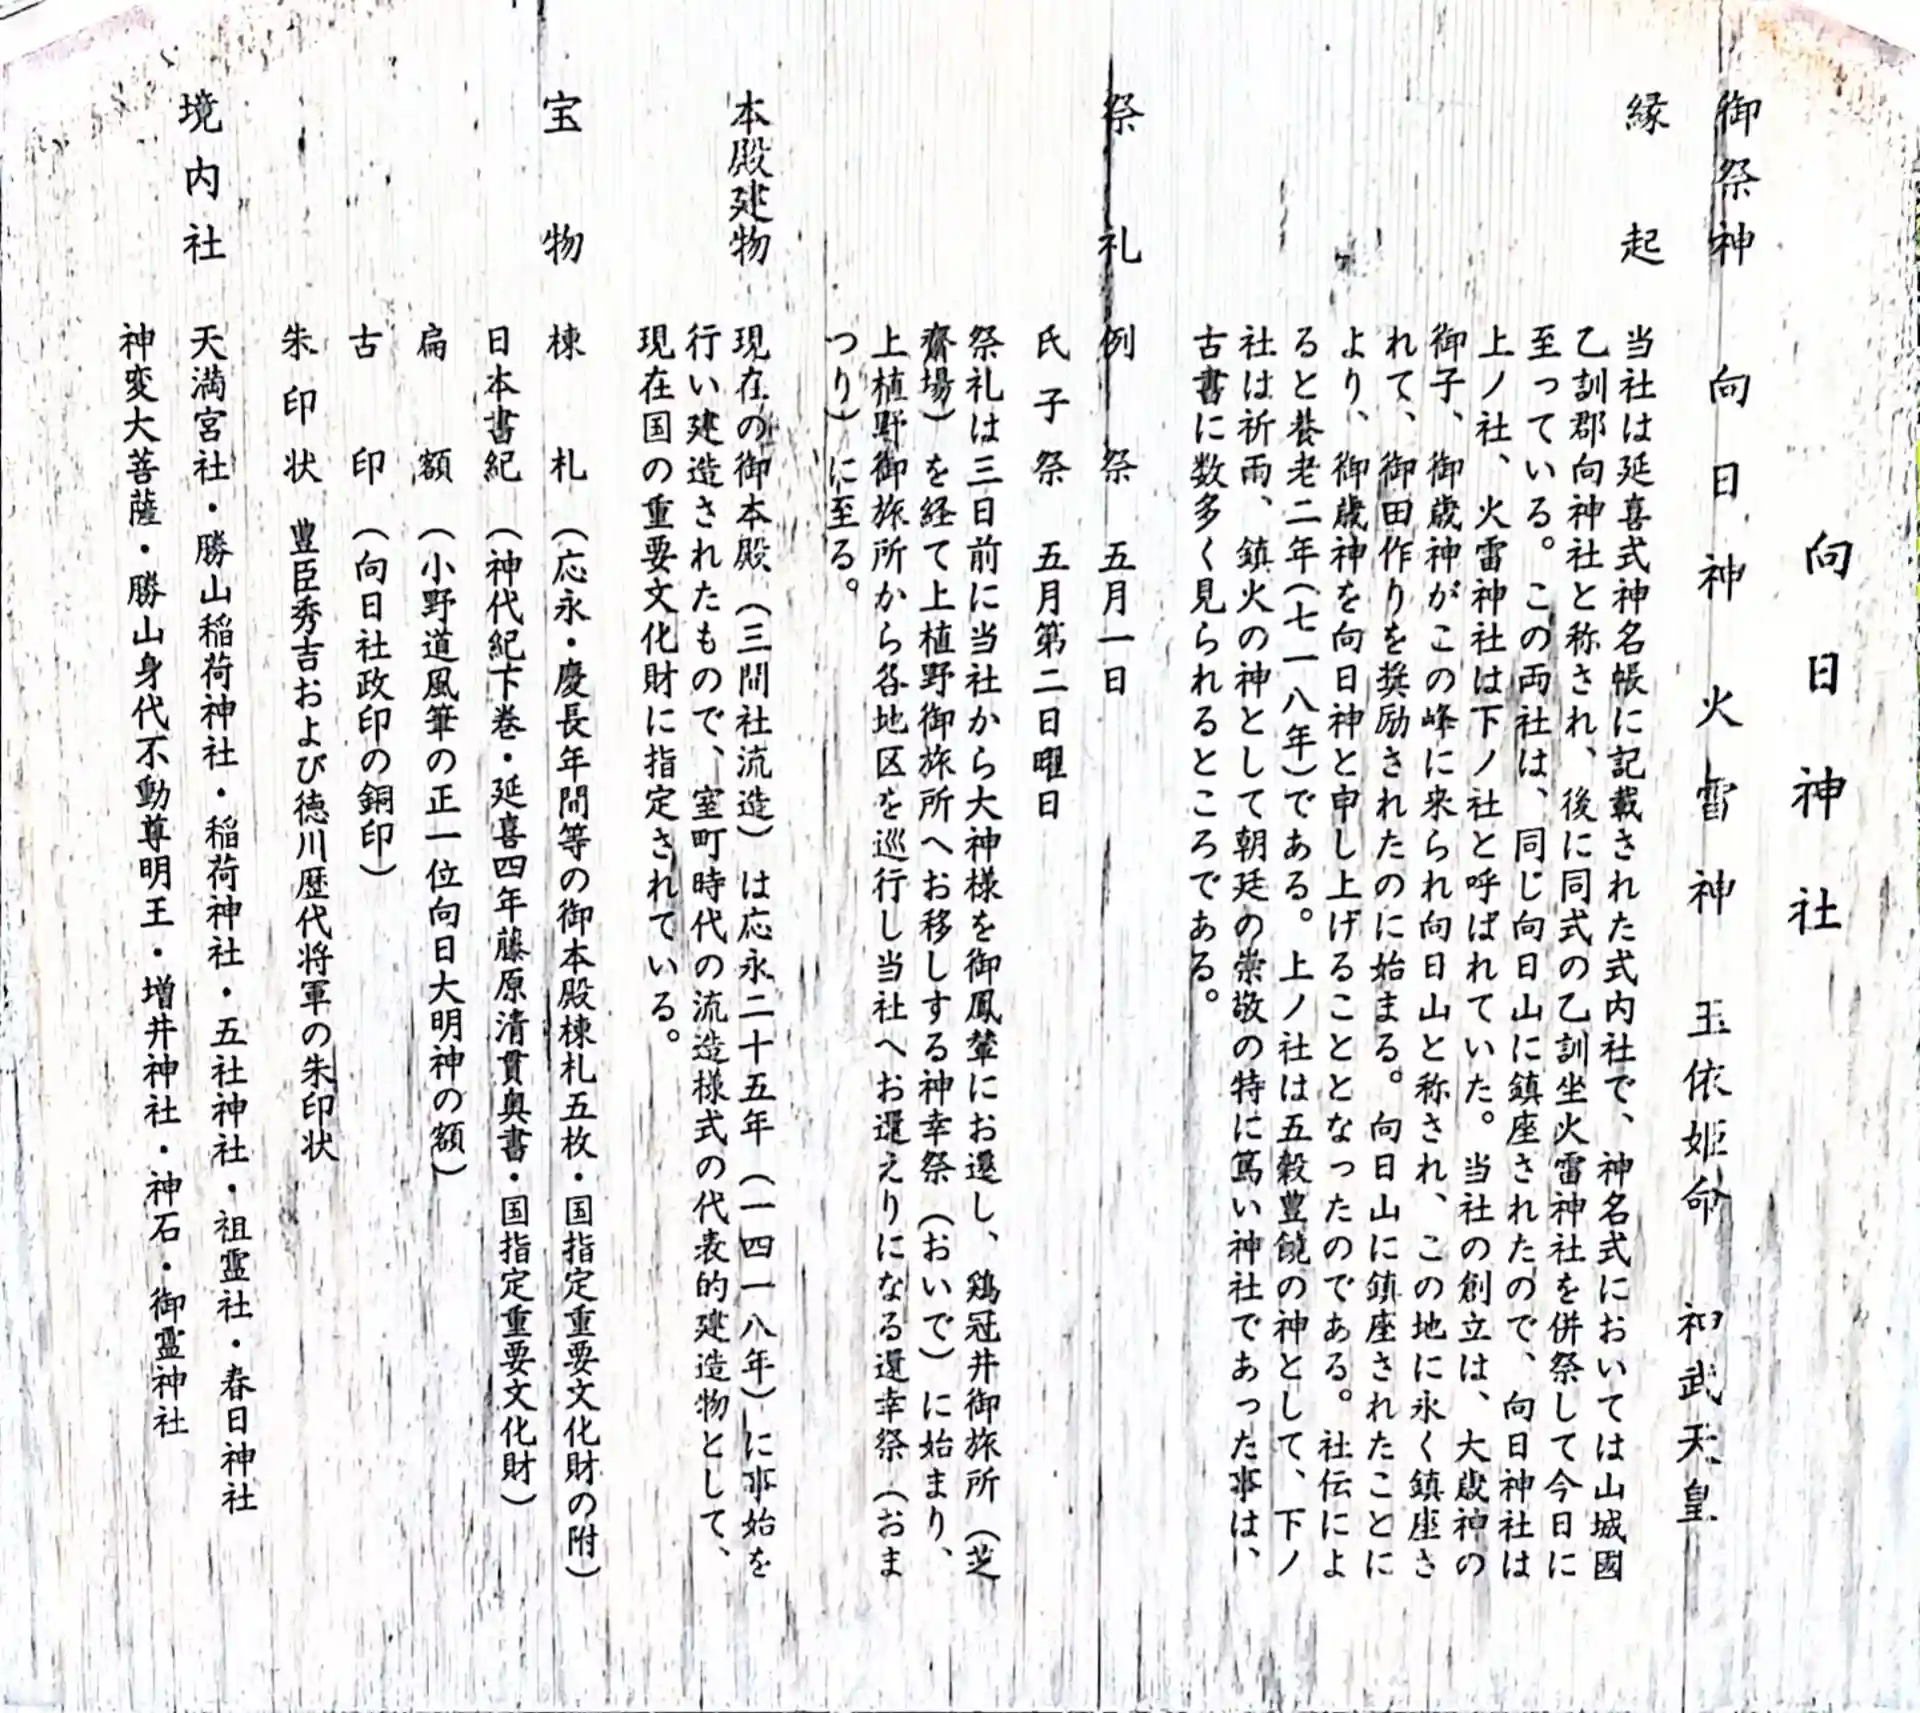 向日神社
御祭神 向日神 火雷神 玉依姫命 神武天皇
縁起 当社は延喜式神名帳に記載された式内社で、神名式においては山城國
乙訓郡向神社と称され、後に同式の乙訓坐火雷神社を併祭して今日に
至っている。この両社は、同じ向日山に鎮座されたので、向日神社は
上ノ社、火雷神社は下ノ社と呼ばれていた。当社の創立は、大歳神の
御子、御歳神がこの峰に来られ向日山と称され、この地に永く鎮座さ
れて、御田作りを奨励されたのに始まる。向日山に鎮座されたことに
より、御歳神を向日神と申し上げることとなったのである。社伝によ
ると養老二年(七一八年)である。上ノ社は五穀豊饒の神として、下ノ
社は祈雨、鎮火の神として朝廷の崇敬の特に篤い神社であった事は、
古書に数多く見られるところである。
祭礼 例祭 五月一日
氏子祭 五月第二日曜日
祭礼は三日前に当社から大神様を御鳳輦にお遷し、鶏冠井御旅所(芝
齋場)を経て上植野御旅所へお移しする神幸祭(おいで)に始まり、
上植野御旅所から各地区を巡行し当社へお還えりになる還幸祭(おま
つり)に至る。
本殿建物 現在の御本殿(三間社流造)は応永二十五年(一四一八年)に事始を
行い建造されたもので、室町時代の流造様式の代表的建造物として、
現在国の重要文化財に指定されている。
宝物 棟札(応永・慶長年間等の御本殿棟札五枚・国指定重要文化財の附)
日本書紀(神代紀下巻・延喜四年藤原清貫奥書・国指定重要文化財)
扁額(小野道風筆の正一位向日大明神の額)
古印(向日社政印の銅印)
朱印状 豊臣秀吉および徳川歴代将軍の朱印状
境内社 天満宮社・勝山稲荷神社・稲荷神社・五社神社・祖霊社・春日神社
神変大菩薩・勝山身代不動尊明王・増井神社・神石・御霊神社